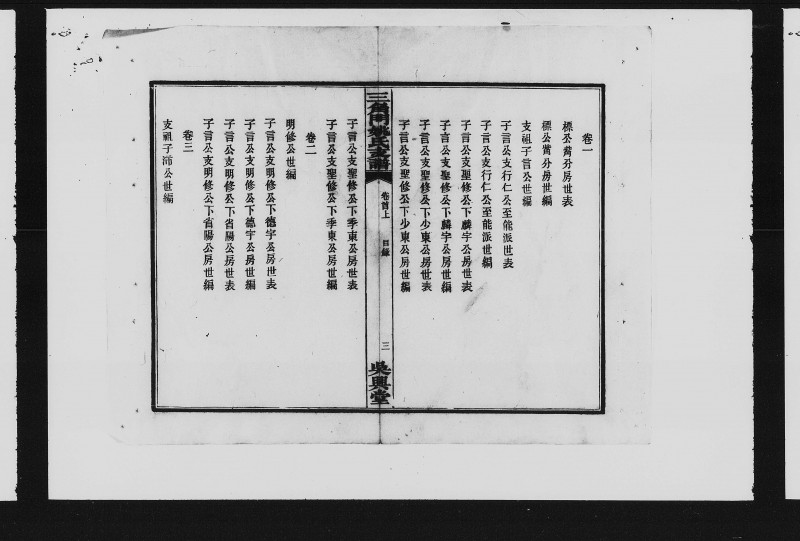 卷一
標公黃分房世表
標公黃分房世編
支祖子言公世編
子言公支行仁公至能派世表
子言公支行仁公至能派世編
子言公支聖修公下麟宇公房世表
子言公支聖修公下麟宇公房世編
子言公支聖修公下少東公房世表
子言公支聖修公下少東公房世編
三角門姚氏支譜
卷首上
目錄
三
吳興堂
子言公支聖修公下季東公房世表
子言公支聖修公下季東公房世編
卷二
明修公世編
子言公支明修公下德宇公房世表
子言公支明修公下德宇公房世編
子言公支明修公下省陽公房世表
子言公支明修公下省陽公房世編
卷三
支祖子沛公世編